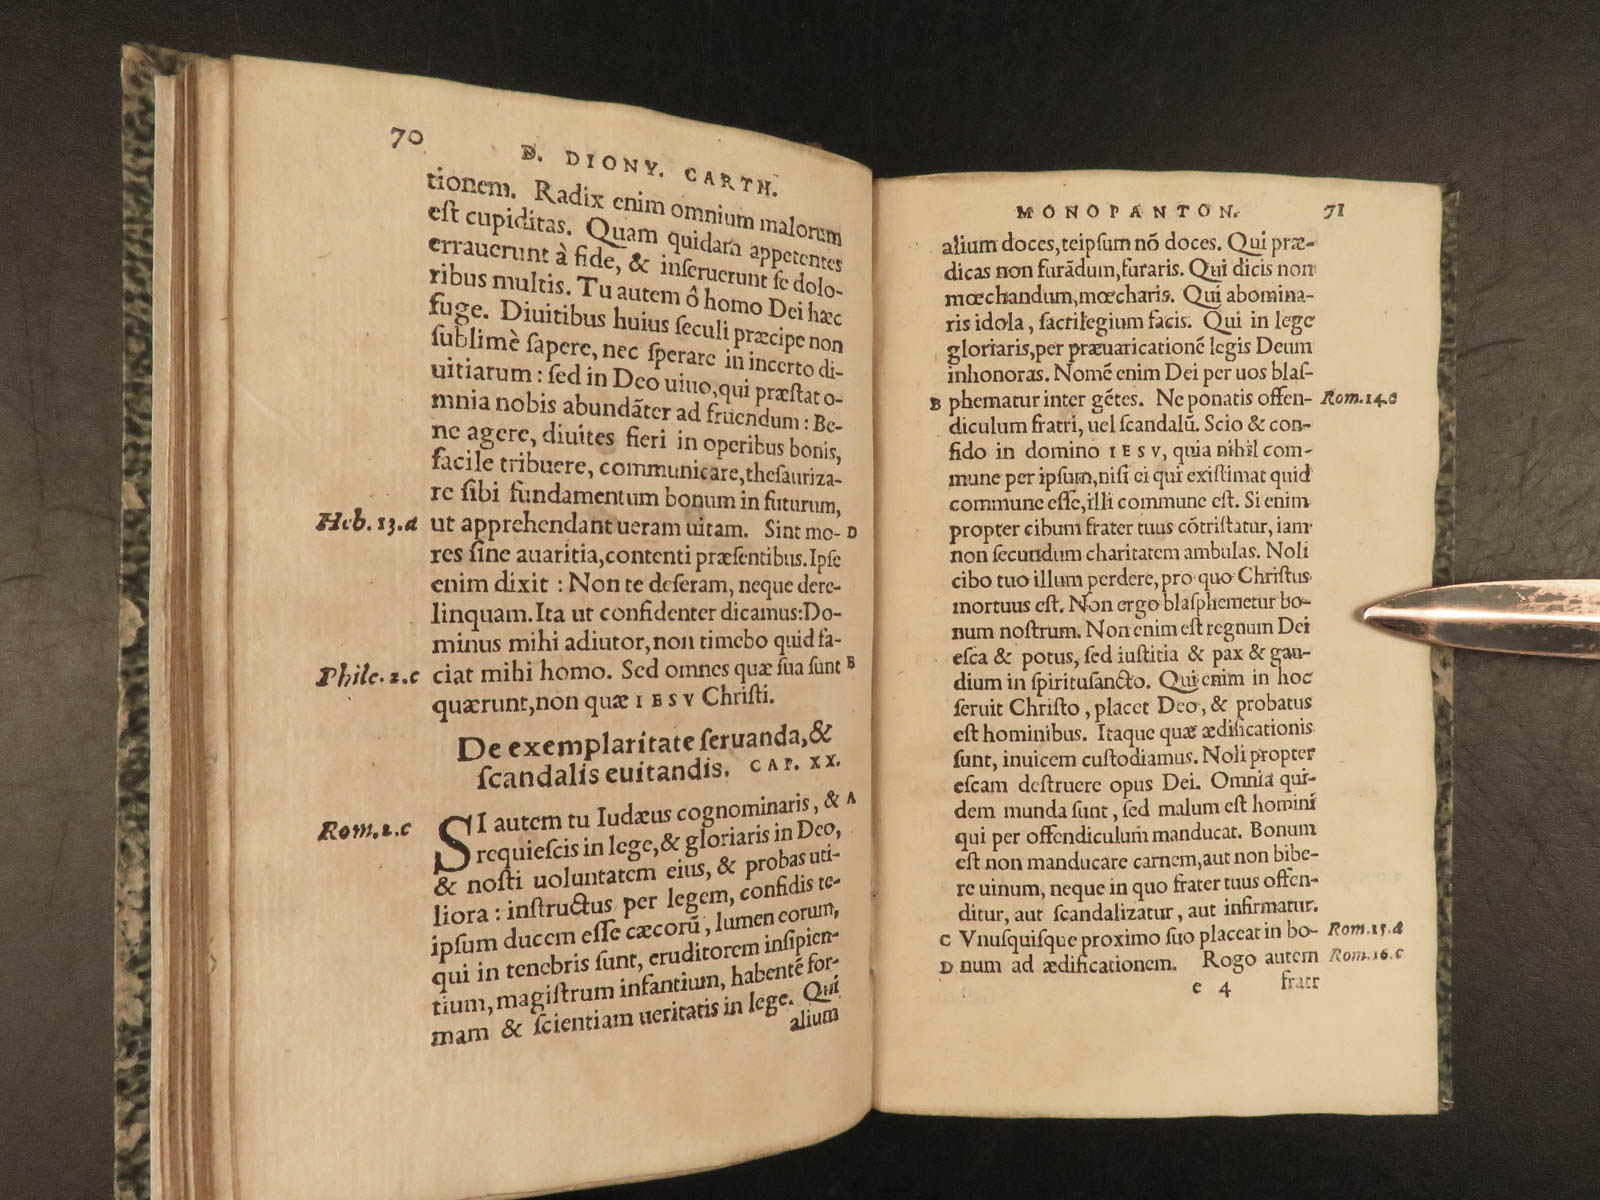 70
D. DIONY. CARTH.
tionem. Radix enim omnium malorum
est cupiditas. Quam quidam appetentes
errauerunt à fide, & inseruerunt se dolo-
ribus multis. Tu autem ô homo Dei hæc
fuge. Diuitibus huius seculi præcipe non
sublimè sapere, nec sperare in incerto di-
uitiarum: sed in Deo uiuo, qui præstat o-
mnia nobis abundãter ad fruendum: Be-
ne agere, diuites fieri in operibus bonis,
facile tribuere, communicare, thesauriza-
re sibi fundamentum bonum in futurum,
Heb. 13. a ut apprehendant ueram uitam. Sint mo- D
res sine auaritia, contenti præsentibus. Ipse
enim dixit : Non te deseram, neque dere-
linquam. Ita ut confidenter dicamus: Do-
minus mihi adiutor, non timebo quid fa-
Philc. 2. c ciat mihi homo. Sed omnes quæ sua sunt B
quærunt, non quæ IESV Christi.
De exemplaritate seruanda, &
scandalis euitandis. CAP. XX.
Rom. 2. c SI autem tu Iudæus cognominaris, & A
requiescis in lege, & gloriaris in Deo,
& nosti uoluntatem eius, & probas uti-
liora : instructus per legem, confidis te-
ipsum ducem esse cæcorũ, lumen eorum,
qui in tenebris sunt, eruditorem insipien-
tium, magistrum infantium, habentẽ for-
mam & scientiam ueritatis in lege. Qui
alium
MONOPANTON. 71
alium doces, teipsum nõ doces. Qui præ-
dicas non furãdum, furaris. Qui dicis non
mœchandum, mœcharis. Qui abomina-
ris idola, sacrilegium facis. Qui in lege
gloriaris, per præuaricationẽ legis Deum
inhonoras. Nomẽ enim Dei per uos blas-
B phematur inter gẽtes. Ne ponatis offen- Rom. 14. c
diculum fratri, uel scandalũ. Scio & con-
fido in domino IESV, quia nihil com-
mune per ipsum, nisi ei qui existimat quid
commune esse, illi commune est. Si enim
propter cibum frater tuus cõtristatur, iam
non secundum charitatem ambulas. Noli
cibo tuo illum perdere, pro quo Christus
mortuus est. Non ergo blasphemetur bo-
num nostrum. Non enim est regnum Dei
esca & potus, sed iustitia & pax & gau-
dium in spiritusancto. Qui enim in hoc
seruit Christo, placet Deo, & probatus
est hominibus. Itaque quæ ædificationis
sunt, inuicem custodiamus. Noli propter
escam destruere opus Dei. Omnia qui-
dem munda sunt, sed malum est homini
qui per offendiculum manducat. Bonum
est non manducare carnem, aut non bibe-
re uinum, neque in quo frater tuus offen-
ditur, aut scandalizatur, aut infirmatur.
C Vnusquisque proximo suo placeat in bo- Rom. 15. a
D num ad ædificationem. Rogo autem Rom. 16. c
e 4 fratr